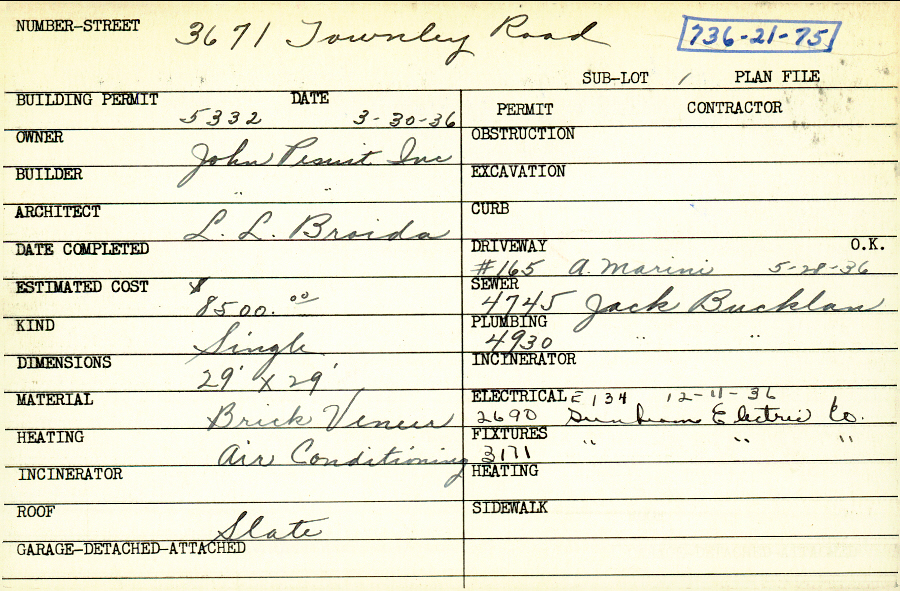 NUMBER-STREET 3671 Townley Road 736-21-75
SUB-LOT / PLAN FILE
BUILDING PERMIT 5332 DATE 3-30-36
OWNER John Pesuit Inc
BUILDER " "
ARCHITECT L. L. Broida
DATE COMPLETED
ESTIMATED COST $ 8500.00
KIND Single
DIMENSIONS 29' x 29'
MATERIAL Brick Veneer
HEATING Air Conditioning
INCINERATOR
ROOF Slate
GARAGE-DETACHED-ATTACHED
PERMIT CONTRACTOR
OBSTRUCTION
EXCAVATION
CURB
DRIVEWAY O.K.
#165 A. Marini 5-28-36
SEWER
4745 Jack Bucklan
PLUMBING
4930 " "
INCINERATOR
ELECTRICAL E134 12-11-36
2690 Sunbeam Electric Co.
FIXTURES " " "
3171
HEATING
SIDEWALK